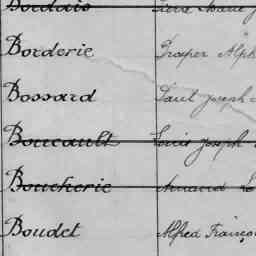 Bordais Pierre Marie J
Borderie Prosper Alph
Bossard Paul Joseph
Boucault Louis Joseph
Boucherie Armand L
Boudet Alfred Franço